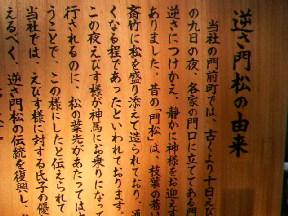 逆さ門松の由来
当社の門前町では、古くより十日え
の九日の夜、各家の門口に立ててある門
逆さにつけかえ、静かに神様をお迎えす
ありました。昔の「門松」は、枝葉の著い
斎竹に松を盛り添えて造られており、
くなる程であったといわれております。
この夜えびす様が神馬にお乗りになって
行されるのに、松の葉先があたっては
うことで、この様にしたと伝えられて
当社では、えびす様に対する氏子の優
えるべく、逆さ門松の伝統を復興し、